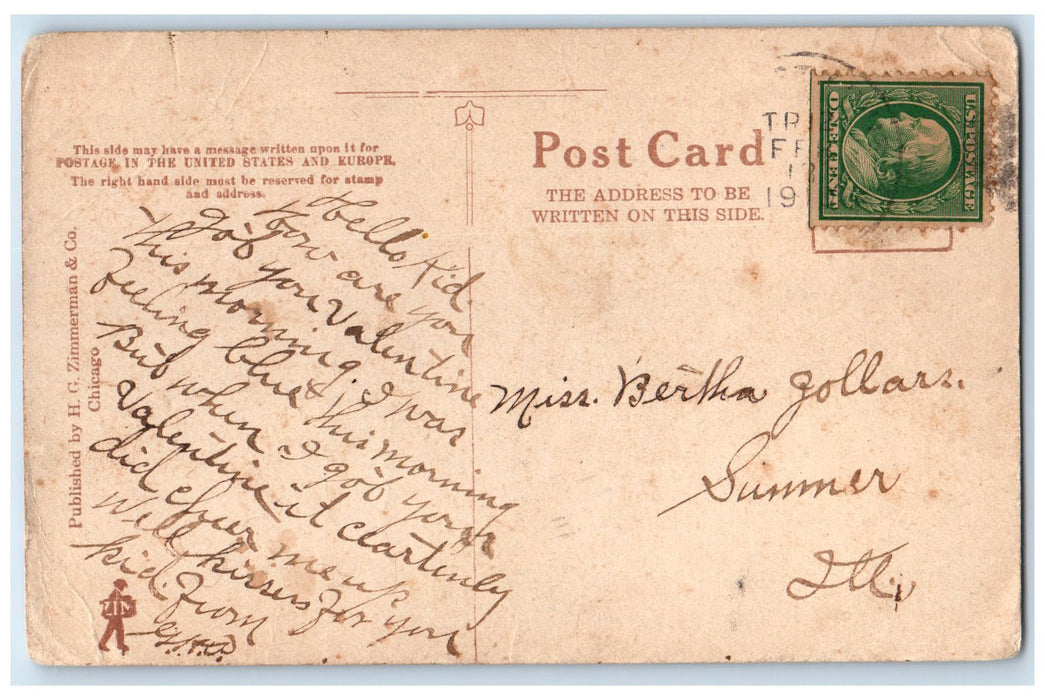 This side may have a message written upon it for
POSTAGE IN THE UNITED STATES AND EUROPE.
The right hand side must be reserved for stamp
and address.
Published by H. G. Zimmerman & Co.
Chicago
ZIM
Hello Kid.
How are you
I got you Valentine
This morning. I was
feeling blue this morning
But when I got your
Valentine it ceartinly
did chear me up
Well kisses for you
kid. From
Post Card
THE ADDRESS TO BE
WRITTEN ON THIS SIDE.
TR
FE
1
19
U.S. POSTAGE
ONE CENT
Miss. Bertha Gollars.
Sumner
Ill.